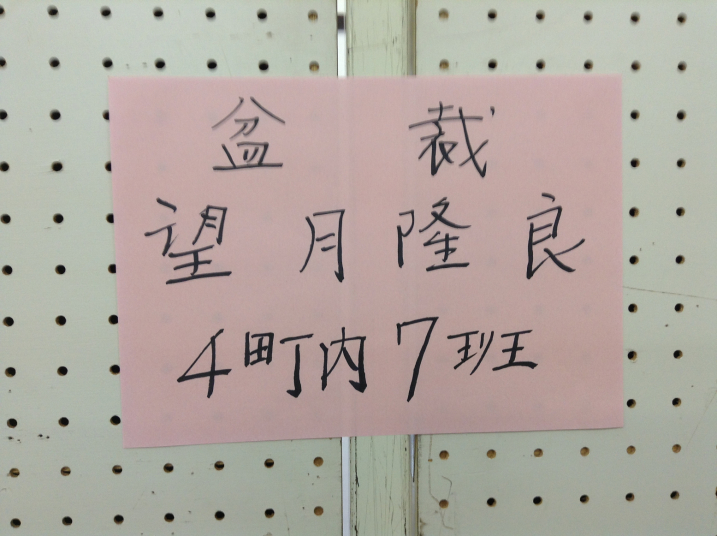 盆栽
望月隆良
4町内7班